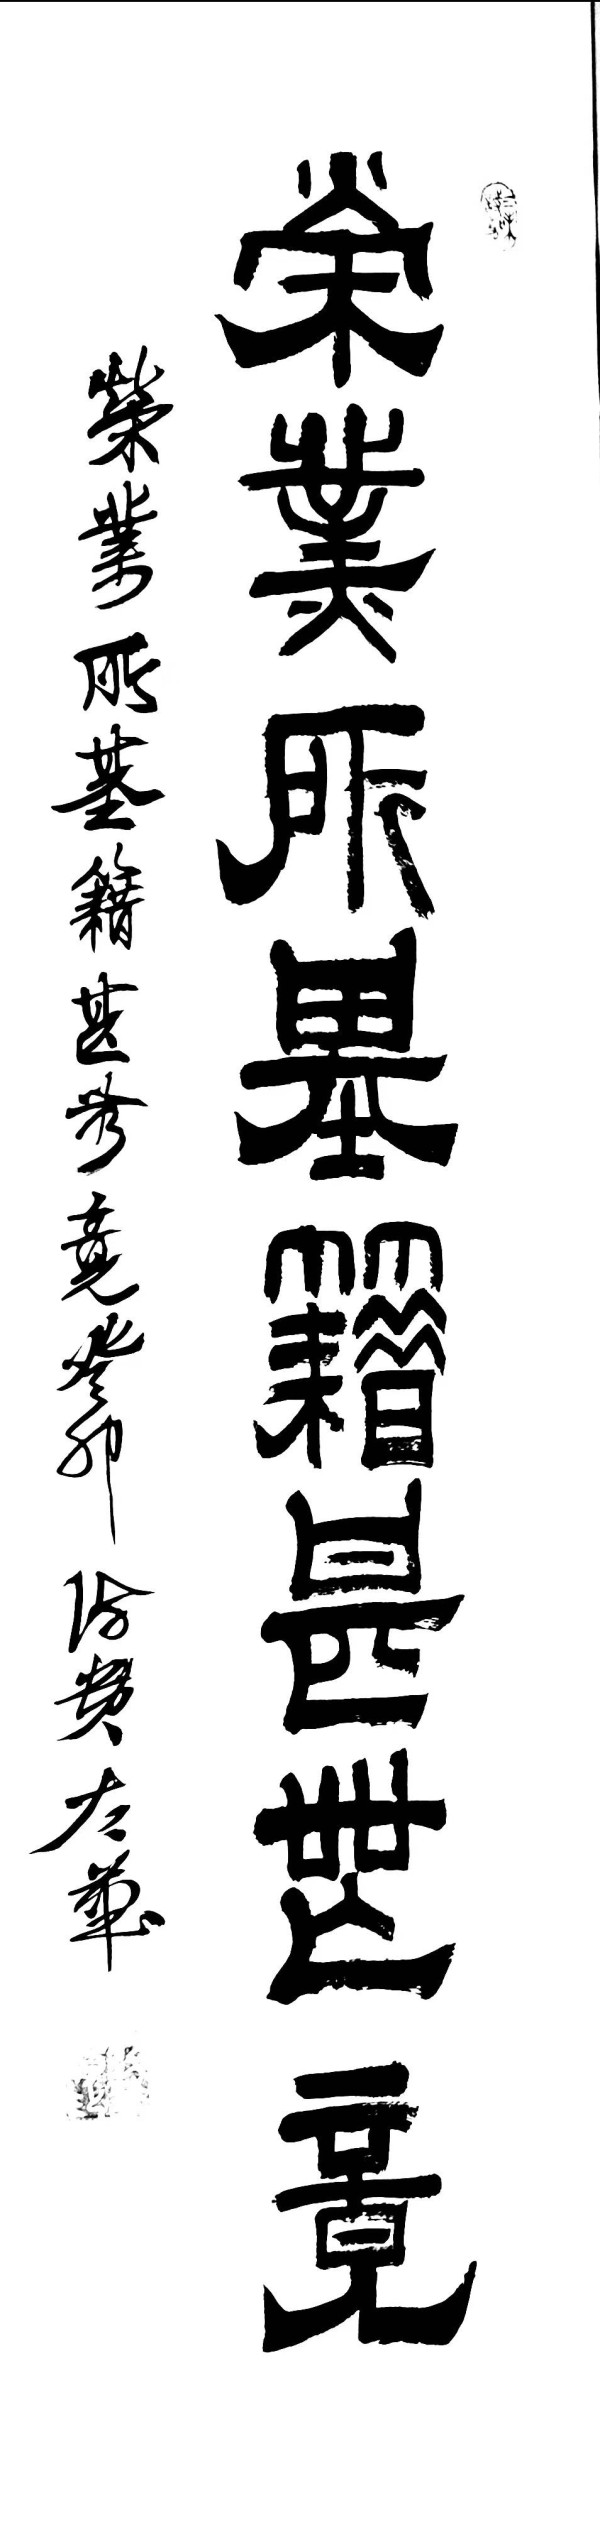 榮業所基籍甚無竟
榮業所基籍甚無竟癸卯